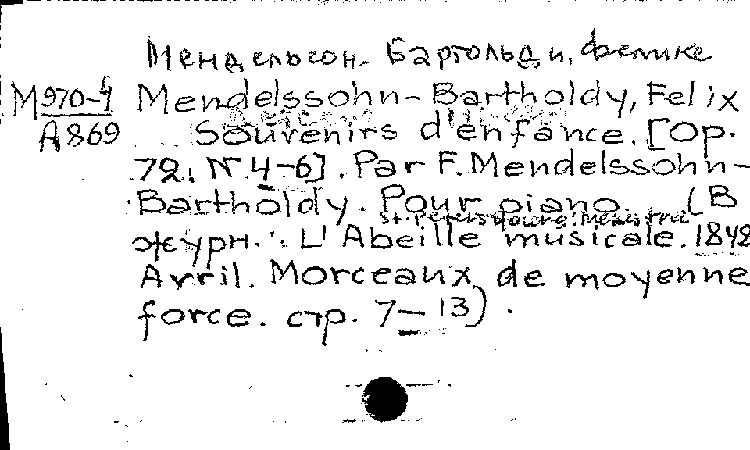 Мендельсон-Бартольди, Феликс
М970-4 Mendelssohn-Bartholdy, Felix
A869 Souvenirs d'enfance. [Op.
72. N 4-6]. Par F. Mendelssohn-
Bartholdy. Pour piano. (В
St. Petersbourg: Menestrel
журн.: L'Abeille musicale. 1842
Avril. Morceaux de moyenne
force. стр. 7-13).